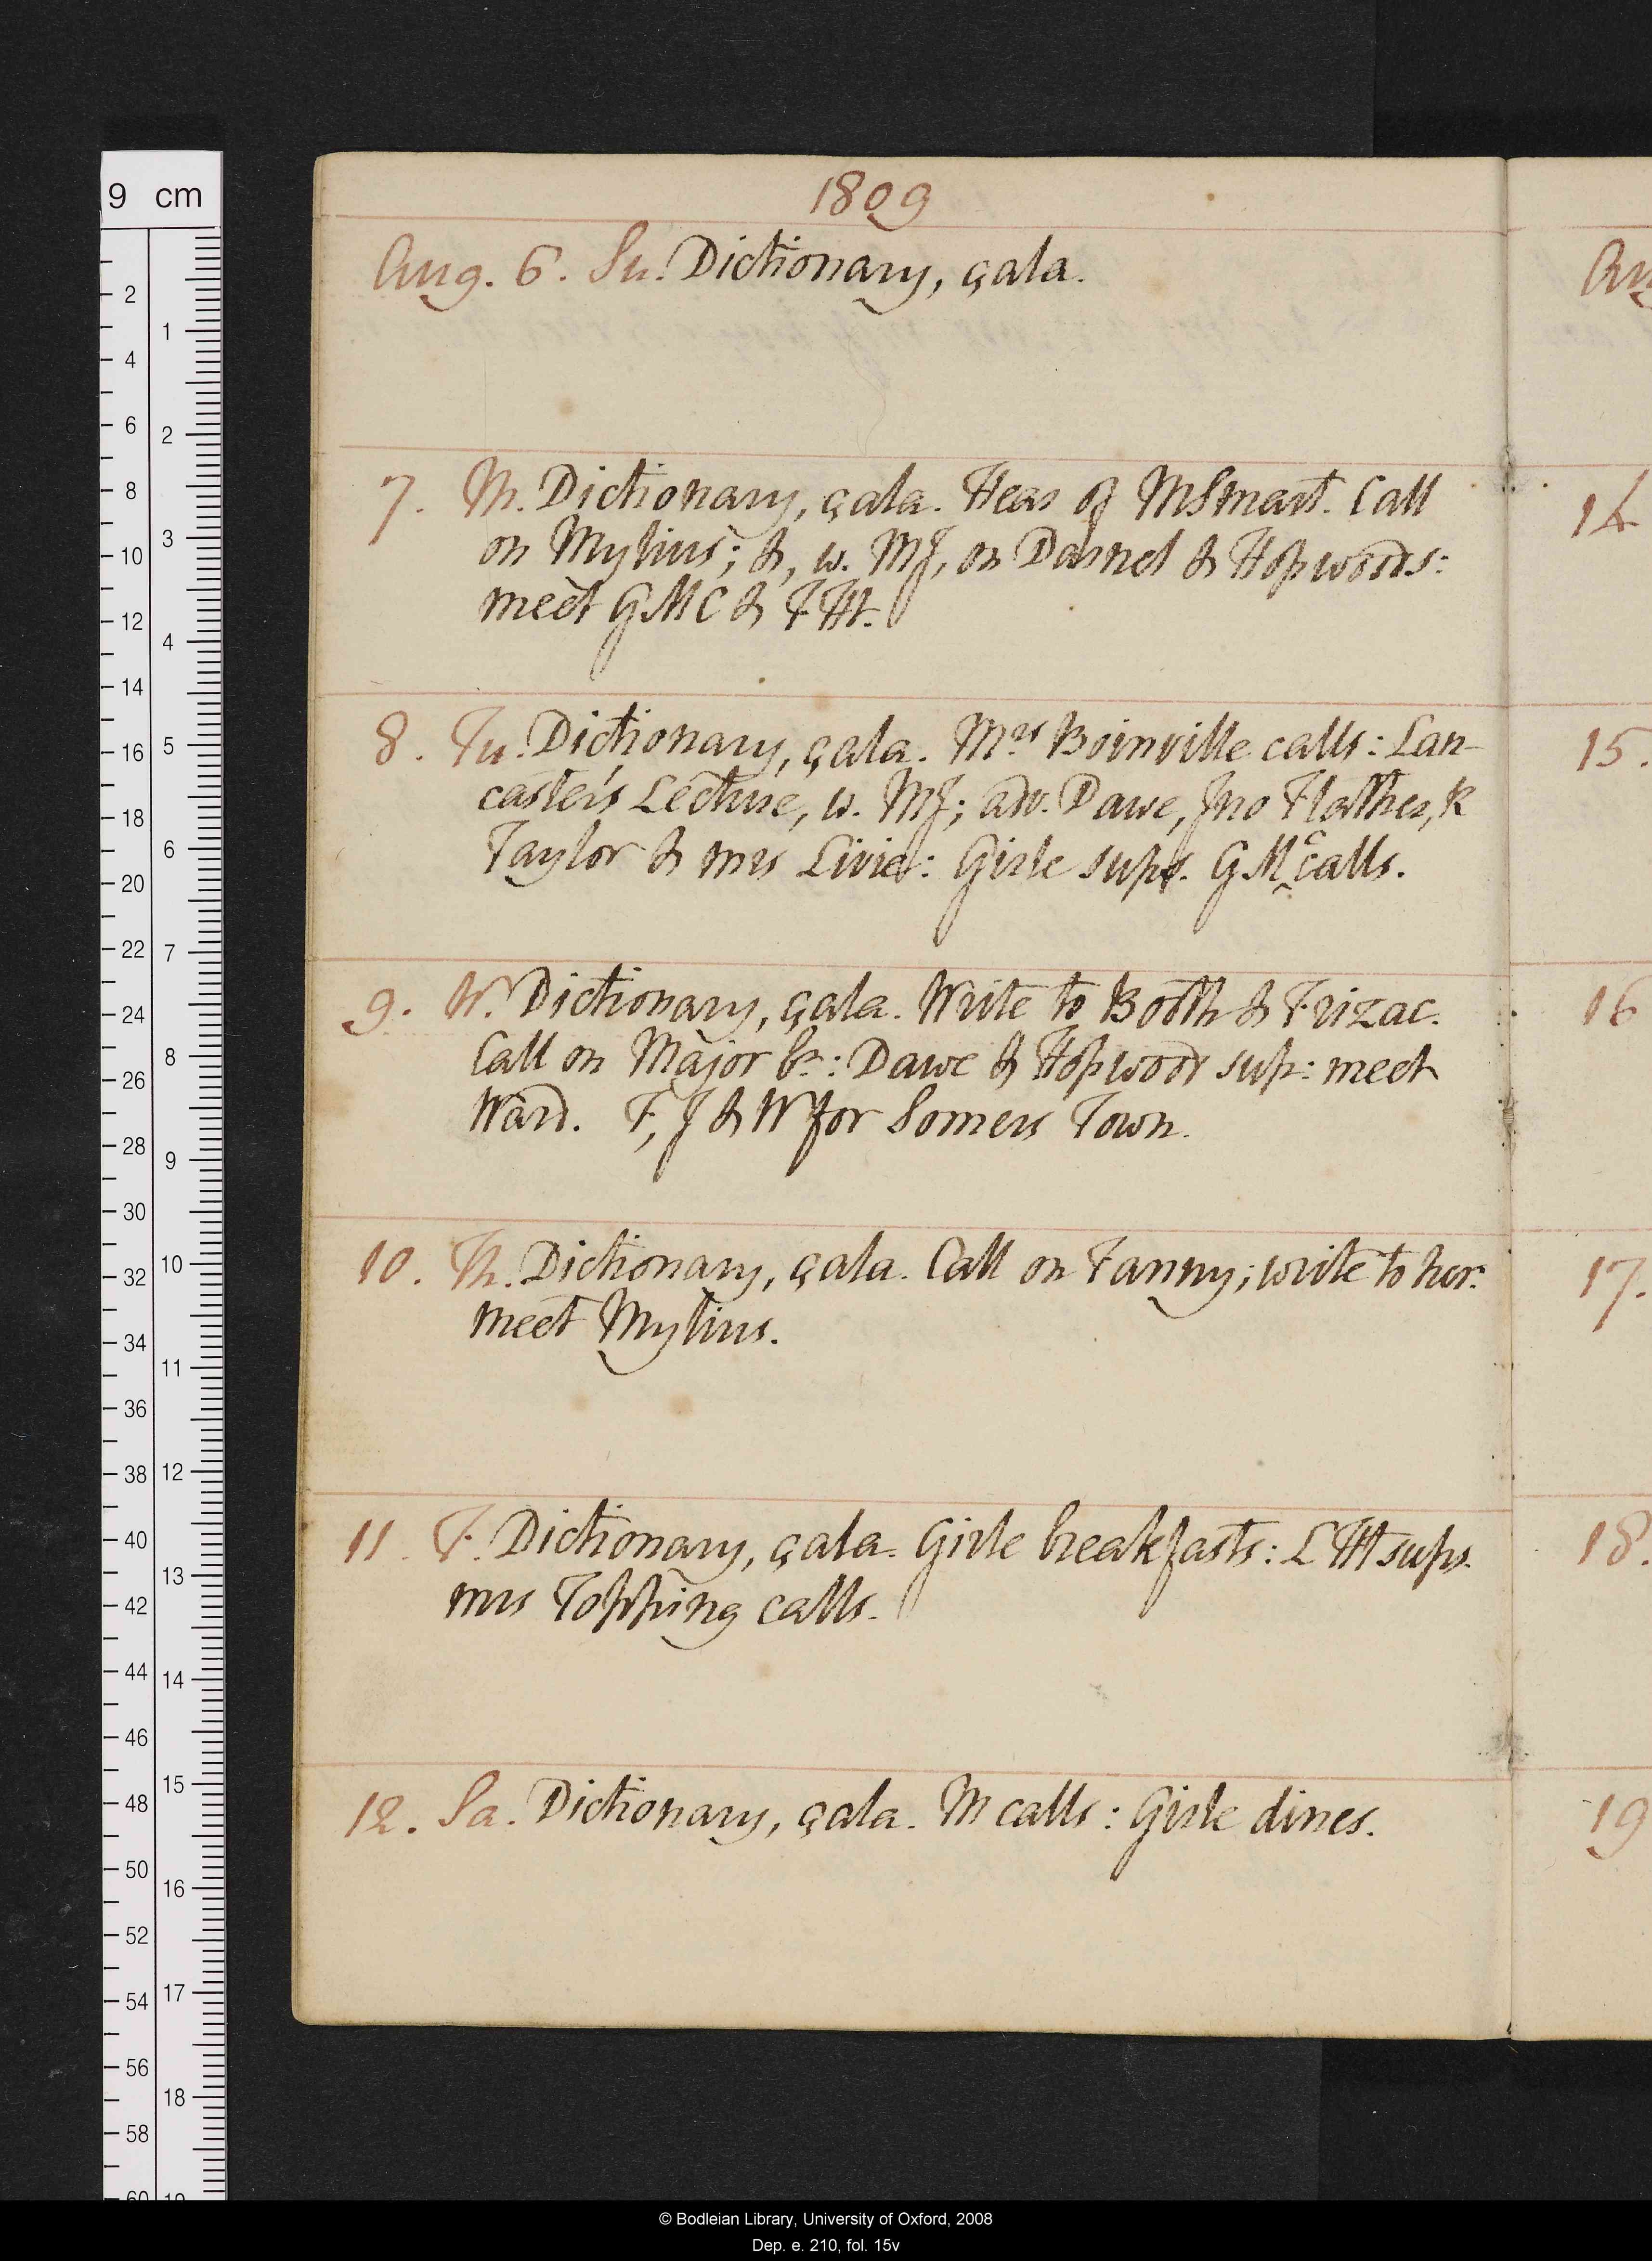 9 cm
1809
Aug. 6. Su. Dictionary, çala.
7. M. Dictionary, çala. Hear of M Smart. Call
on Mylius; &, w. MJ, on Darnel & Hopwoods:
meet GMC & T Ht.
8. Tu. Dictionary, çala. Mrs Boinville calls: Lan-
caster's Lecture, w. MJ; adv. Dawe, Jno Flather, R
Taylor & mrs Livie: Girle sups. G Mc calls.
9. W. Dictionary, çala. Write to Booth & Frizac.
Call on Major &c: Dawe & Hopwood sup: meet
Ward. F, J & W for Somers Town.
10. Th. Dictionary, çala. Call on Fanny; write to her:
meet Mylius.
11. F. Dictionary, çala. Girle breakfasts: L Ht sups.
mrs Topping calls.
12. Sa. Dictionary, çala. M calls: Girle dines.
14
15.
16
17.
18.
19
© Bodleian Library, University of Oxford, 2008
Dep. e. 210, fol. 15v